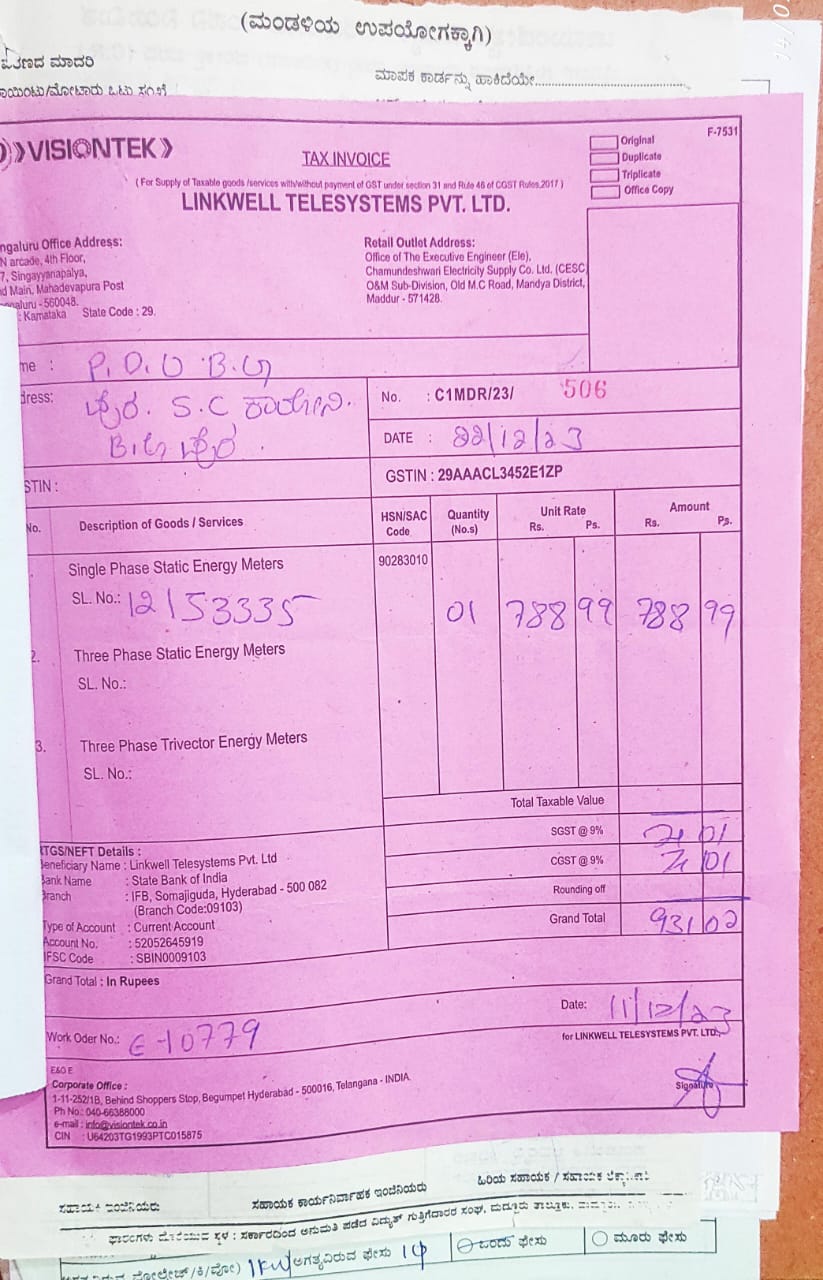 (ಮಂಡಳಿಯ ಉಪಯೋಗಕ್ಕಾಗಿ)
ಮಾದರಿ
ಮಾಪಕ ಕಾರ್ಡನ್ನು ಹಾಕಿದೆಯೇ
VISIONTEK
TAX INVOICE
Original
Duplicate
Triplicate
Office Copy
F-7531
( For Supply of Taxable goods /services with/without payment of GST under section 31 and Rule 46 of CGST Rules,2017 )
LINKWELL TELESYSTEMS PVT. LTD.
ngaluru Office Address:
N arcade, 4th Floor,
7, Singayyanapalya,
d Main, Mahadevapura Post
galuru - 560048.
: Karnataka State Code : 29.
Retail Outlet Address:
Office of The Executive Engineer (Ele),
Chamundeshwari Electricity Supply Co. Ltd. (CESC
O&M Sub-Division, Old M.C Road, Mandya District,
Maddur - 571428.
me :
dress: S.C ಕಾಲೋನಿ.
No. : C1MDR/23/ 506
DATE : 22/12/23
STIN :
GSTIN : 29AAACL3452E1ZP
No. Description of Goods / Services HSN/SAC Code Quantity (No.s) Unit Rate Rs. Ps. Amount Rs. Ps.
Single Phase Static Energy Meters 90283010
SL. No.: 12153335 01 788 99 788 99
2. Three Phase Static Energy Meters
SL. No.:
3. Three Phase Trivector Energy Meters
SL. No.:
Total Taxable Value
SGST @ 9% 71 01
CGST @ 9% 71 01
Rounding off
Grand Total 931 02
RTGS/NEFT Details :
Beneficiary Name : Linkwell Telesystems Pvt. Ltd
Bank Name : State Bank of India
Branch : IFB, Somajiguda, Hyderabad - 500 082
(Branch Code:09103)
Type of Account : Current Account
Account No. : 52052645919
IFSC Code : SBIN0009103
Grand Total : In Rupees
Date: 11/12/23
Work Oder No.: E-10779
for LINKWELL TELESYSTEMS PVT. LTD.,
Signature
E&O E
Corporate Office :
1-11-252/1B, Behind Shoppers Stop, Begumpet Hyderabad - 500016, Telangana - INDIA.
Ph No.: 040-66388000
e-mail : info@visiontek.co.in
CIN : U64203TG1993PTC015875
ಸಹಾಯಕ ಇಂಜಿನಿಯರು ಸಹಾಯಕ ಕಾರ್ಯನಿರ್ವಾಹಕ ಇಂಜಿನಿಯರು ಹಿರಿಯ ಸಹಾಯಕ / ಸಹಾಯಕ
ಫಾರಂಗಳು ದೊರೆಯುವ ಸ್ಥಳ : ಸರ್ಕಾರದಿಂದ ಅನುಮತಿ ಪಡೆದ ವಿದ್ಯುತ್ ಗುತ್ತಿಗೆದಾರರ ಸಂಘ, ಮದ್ದೂರು ತಾಲ್ಲೂಕು,
1KW ಅಗತ್ಯವಿರುವ ಫೇಸು 1Φ ಒಂದು ಫೇಸು ಮೂರು ಫೇಸು